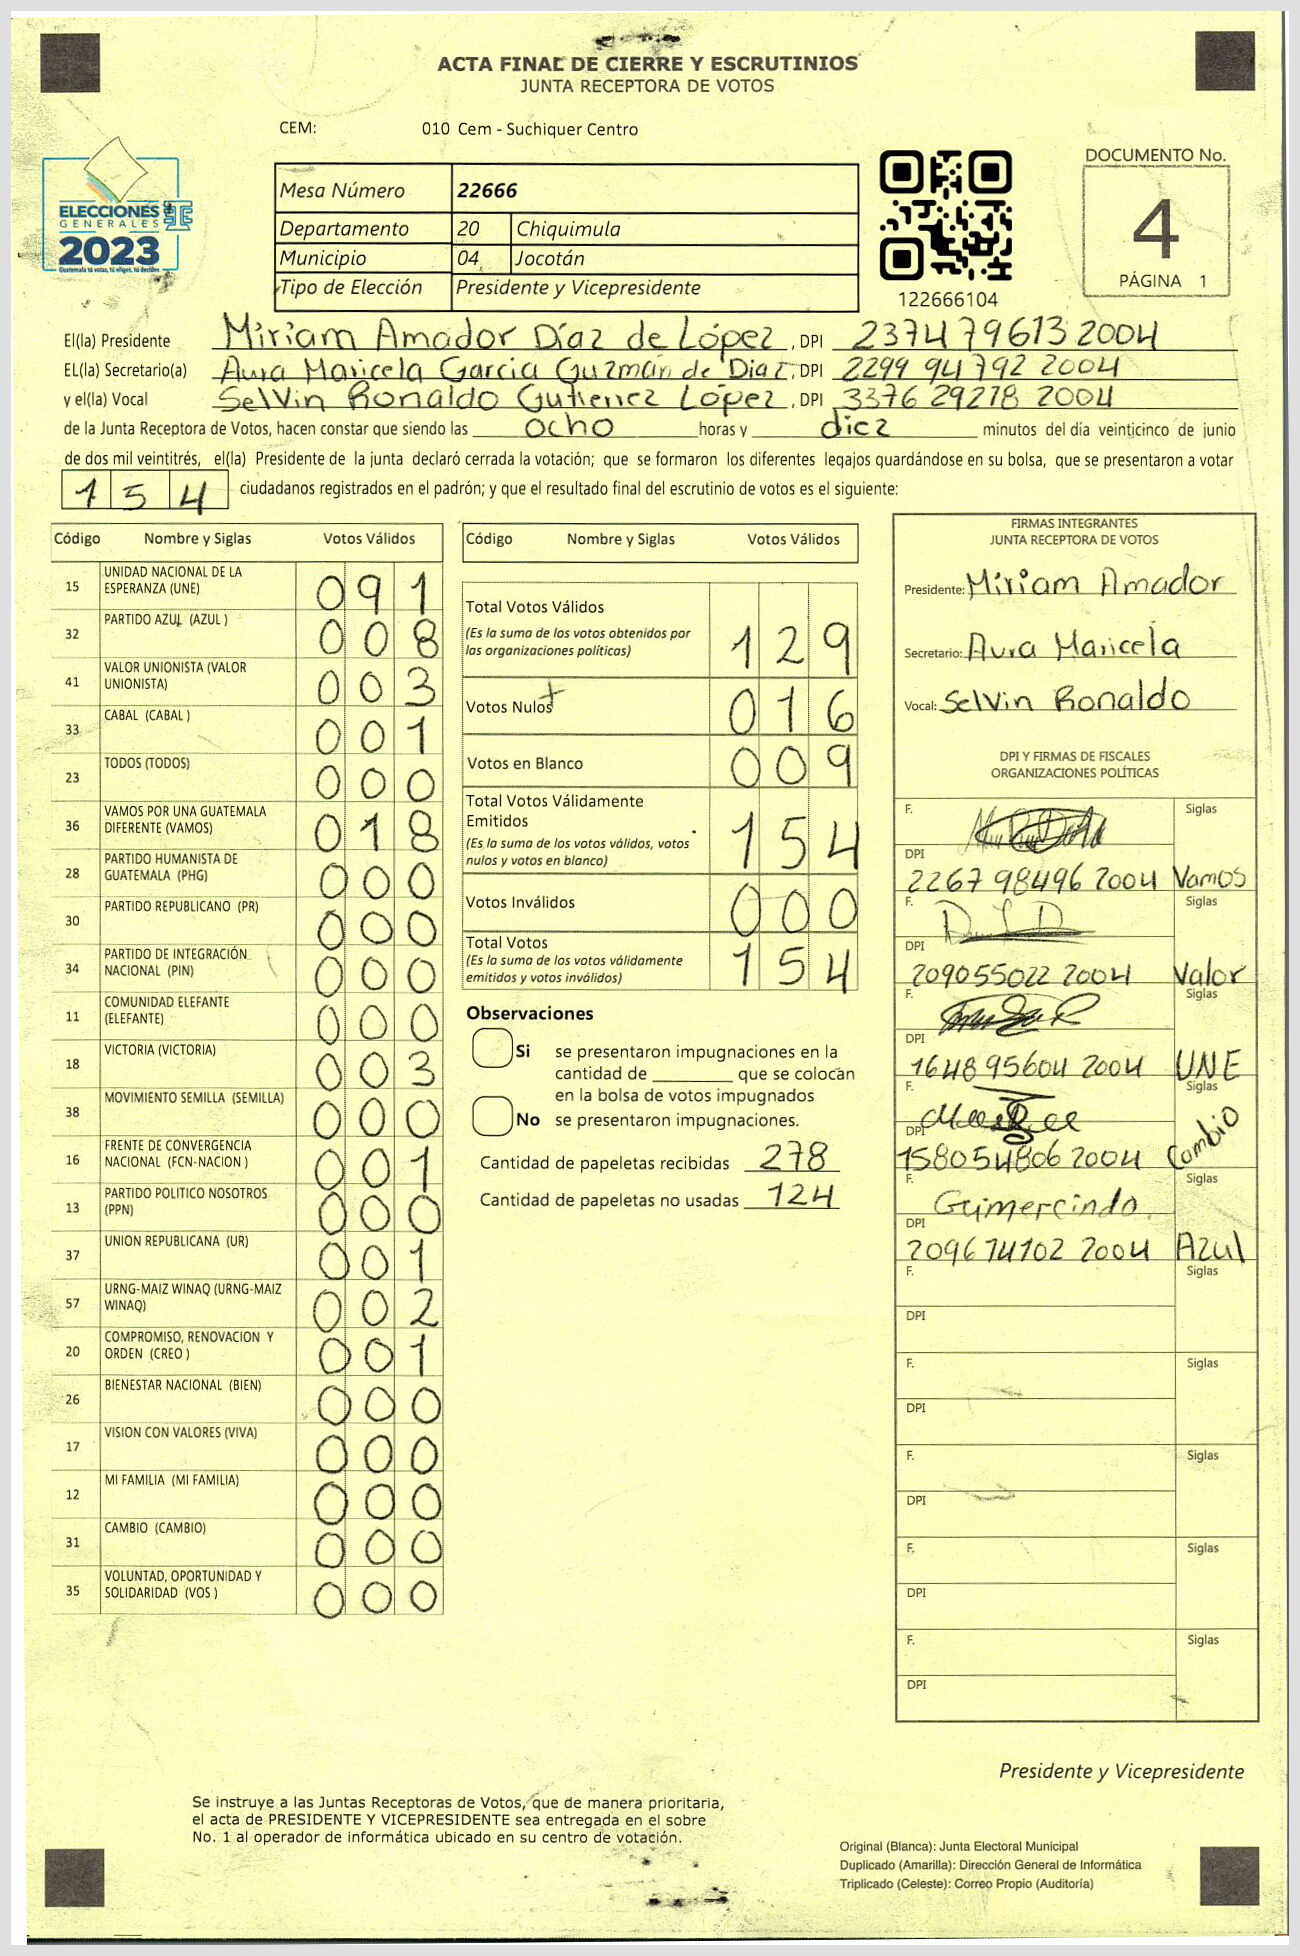 ACTA FINAL DE CIERRE Y ESCRUTINIOS
JUNTA RECEPTORA DE VOTOS
CEM: 010 Cem - Suchiquer Centro
ELECCIONES
GENERALES
2023
Guatemala tú votas, tú eliges, tú decides
Mesa Número 22666
Departamento 20 Chiquimula
Municipio 04 Jocotán
Tipo de Elección Presidente y Vicepresidente
122666104
DOCUMENTO No.
4
PÁGINA 1
El(la) Presidente Miriam Amador Díaz de López, DPI 2374 79613 2004
EL(la) Secretario(a) Aura Maricela Garcia Guzmán de Diaz, DPI 2299 94792 2004
y el(la) Vocal Selvin Ronaldo Gutierrez López, DPI 3376 29278 2004
de la Junta Receptora de Votos, hacen constar que siendo las ocho horas y diez minutos del día veinticinco de junio
de dos mil veintitrés, el(la) Presidente de la junta declaró cerrada la votación; que se formaron los diferentes legajos guardándose en su bolsa, que se presentaron a votar
154 ciudadanos registrados en el padrón; y que el resultado final del escrutinio de votos es el siguiente:
Código Nombre y Siglas Votos Válidos
15 UNIDAD NACIONAL DE LA ESPERANZA (UNE) 091
32 PARTIDO AZUL (AZUL ) 008
41 VALOR UNIONISTA (VALOR UNIONISTA) 003
33 CABAL (CABAL ) 001
23 TODOS (TODOS) 000
36 VAMOS POR UNA GUATEMALA DIFERENTE (VAMOS) 018
28 PARTIDO HUMANISTA DE GUATEMALA (PHG) 000
30 PARTIDO REPUBLICANO (PR) 000
34 PARTIDO DE INTEGRACIÓN NACIONAL (PIN) 000
11 COMUNIDAD ELEFANTE (ELEFANTE) 000
18 VICTORIA (VICTORIA) 003
38 MOVIMIENTO SEMILLA (SEMILLA) 000
16 FRENTE DE CONVERGENCIA NACIONAL (FCN-NACION ) 001
13 PARTIDO POLITICO NOSOTROS (PPN) 000
37 UNION REPUBLICANA (UR) 001
57 URNG-MAIZ WINAQ (URNG-MAIZ WINAQ) 002
20 COMPROMISO, RENOVACION Y ORDEN (CREO ) 001
26 BIENESTAR NACIONAL (BIEN) 000
17 VISION CON VALORES (VIVA) 000
12 MI FAMILIA (MI FAMILIA) 000
31 CAMBIO (CAMBIO) 000
35 VOLUNTAD, OPORTUNIDAD Y SOLIDARIDAD (VOS ) 000
Código Nombre y Siglas Votos Válidos
Total Votos Válidos 129
(Es la suma de los votos obtenidos por
las organizaciones políticas)
Votos Nulos 016
Votos en Blanco 009
Total Votos Válidamente
Emitidos 154
(Es la suma de los votos válidos, votos
nulos y votos en blanco)
Votos Inválidos 000
Total Votos 154
(Es la suma de los votos válidamente
emitidos y votos inválidos)
Observaciones
Si se presentaron impugnaciones en la
cantidad de ________ que se colocan
en la bolsa de votos impugnados
No se presentaron impugnaciones.
Cantidad de papeletas recibidas 278
Cantidad de papeletas no usadas 124
FIRMAS INTEGRANTES
JUNTA RECEPTORA DE VOTOS
Presidente: Miriam Amador
Secretario: Aura Maricela
Vocal: Selvin Ronaldo
DPI Y FIRMAS DE FISCALES
ORGANIZACIONES POLÍTICAS
F. Siglas
DPI
2267 98496 2004 Vamos
F. Siglas
DPI
209055022 2004 Valor
F. Siglas
DPI
1648 95604 2004 UNE
F. Siglas
DPI
158054806 2004 Cambio
F. Gumercindo Siglas
DPI
209674102 2004 Azul
F. Siglas
DPI
F. Siglas
DPI
F. Siglas
DPI
F. Siglas
DPI
F. Siglas
DPI
Presidente y Vicepresidente
Se instruye a las Juntas Receptoras de Votos, que de manera prioritaria,
el acta de PRESIDENTE Y VICEPRESIDENTE sea entregada en el sobre
No. 1 al operador de informática ubicado en su centro de votación.
Original (Blanca): Junta Electoral Municipal
Duplicado (Amarilla): Dirección General de Informática
Triplicado (Celeste): Correo Propio (Auditoría)